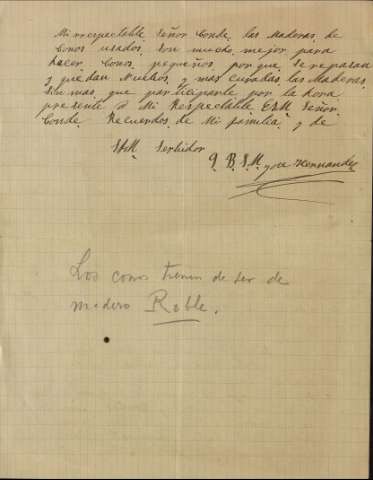 Mi respectable Señor Conde, las Maderas, de
Conos usados, son mucho mejor para
hacer Conos, pequeños por que se repasan
y quedan Muchos, y mas curadas las Maderas
Sin mas, que participarle por la
presente a Mi Respectable Señor
Conde. Recuerdos de Mi familia, y de
Servidor
Q. B. S. M.
Hernandez
Los conos tienen de ser de
madera Roble.